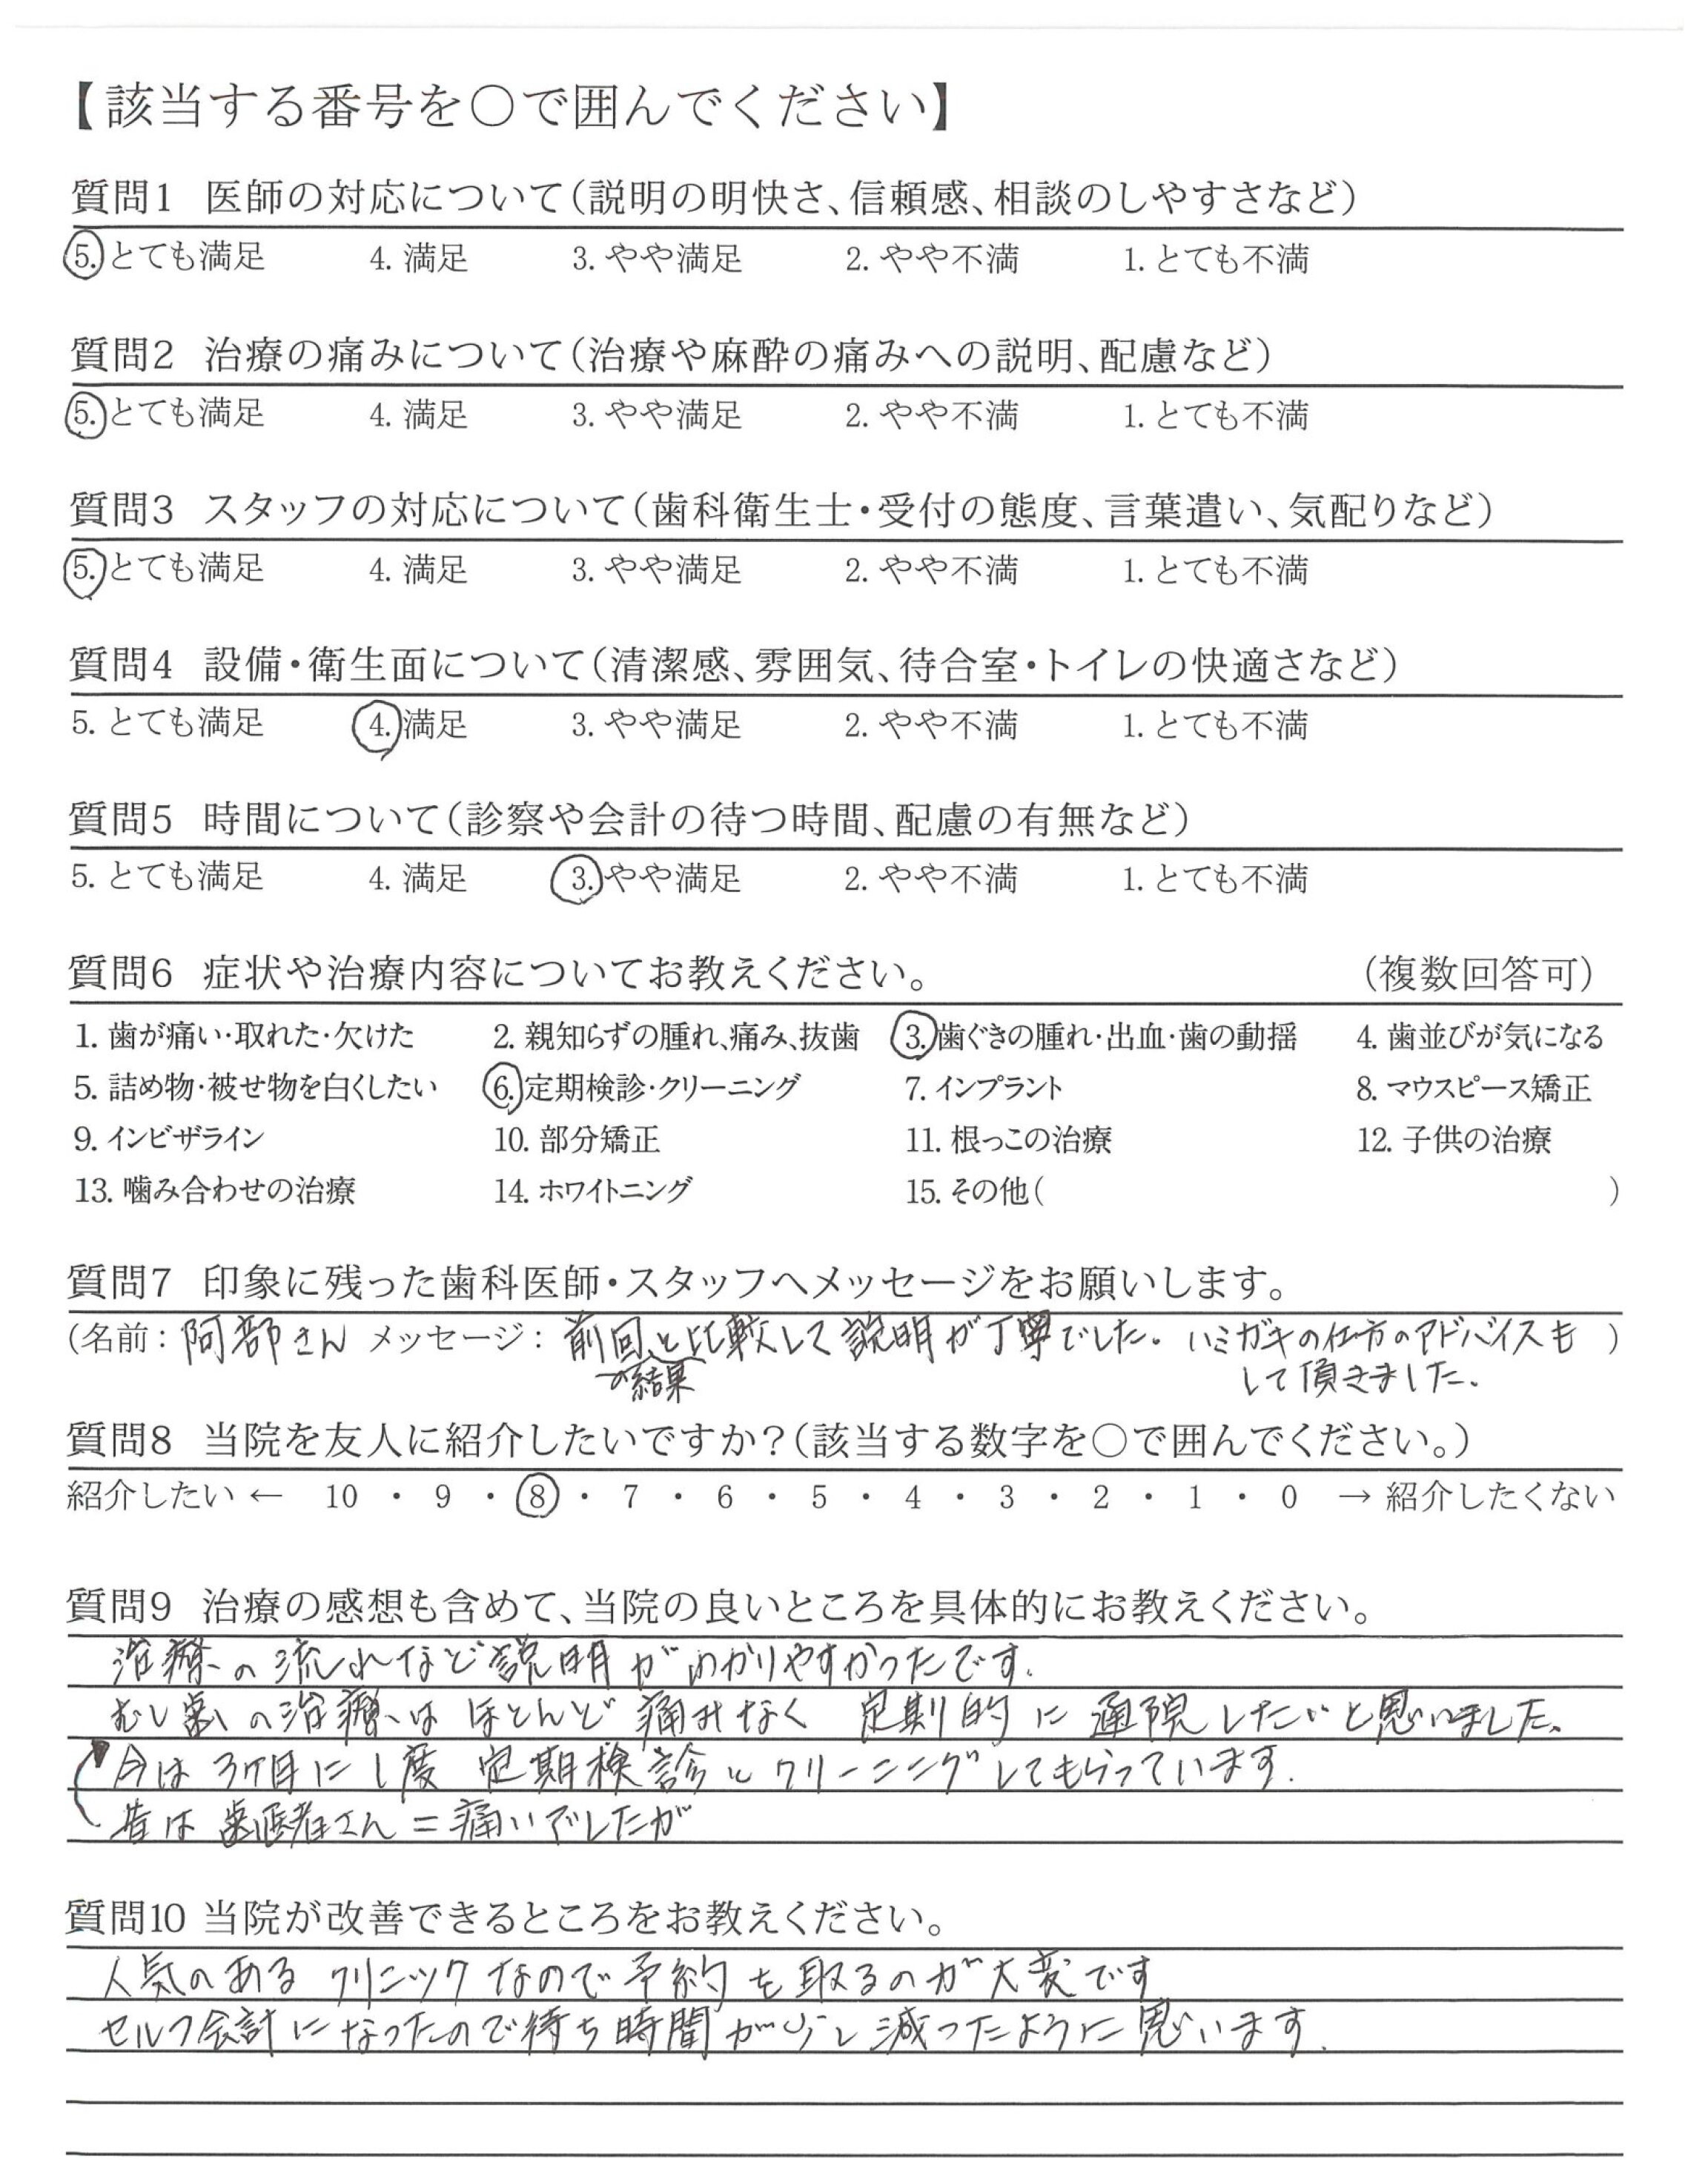 【該当する番号を○で囲んでください】
質問1 医師の対応について(説明の明快さ、信頼感、相談のしやすさなど)
5. とても満足 4. 満足 3. やや満足 2. やや不満 1. とても不満
質問2 治療の痛みについて(治療や麻酔の痛みへの説明、配慮など)
5. とても満足 4. 満足 3. やや満足 2. やや不満 1. とても不満
質問3 スタッフの対応について(歯科衛生士・受付の態度、言葉遣い、気配りなど)
5. とても満足 4. 満足 3. やや満足 2. やや不満 1. とても不満
質問4 設備・衛生面について(清潔感、雰囲気、待合室・トイレの快適さなど)
5. とても満足 4. 満足 3. やや満足 2. やや不満 1. とても不満
質問5 時間について(診察や会計の待つ時間、配慮の有無など)
5. とても満足 4. 満足 3. やや満足 2. やや不満 1. とても不満
質問6 症状や治療内容についてお教えください。 (複数回答可)
1. 歯が痛い・取れた・欠けた 2. 親知らずの腫れ、痛み、抜歯 3. 歯ぐきの腫れ・出血・歯の動揺 4. 歯並びが気になる
5. 詰め物・被せ物を白くしたい 6. 定期検診・クリーニング 7. インプラント 8. マウスピース矯正
9. インビザライン 10. 部分矯正 11. 根っこの治療 12. 子供の治療
13. 噛み合わせの治療 14. ホワイトニング 15. その他( )
質問7 印象に残った歯科医師・スタッフへメッセージをお願いします。
(名前: 阿部さん メッセージ: 前回と比較して説明が丁寧でした。ハミガキの仕方のアドバイスも )
の結果 して頂きました.
質問8 当院を友人に紹介したいですか?(該当する数字を○で囲んでください。)
紹介したい ← 10 ・ 9 ・ 8 ・ 7 ・ 6 ・ 5 ・ 4 ・ 3 ・ 2 ・ 1 ・ 0 → 紹介したくない
質問9 治療の感想も含めて、当院の良いところを具体的にお教えください。
治療の流れなど説明がわかりやすかったです.
むし歯の治療はほとんど痛みなく 定期的に通院したいと思いました。
今は3ヶ月に1度 定期検診とクリーニングしてもらっています.
昔は歯医者さん=痛いでしたが
質問10 当院が改善できるところをお教えください。
人気のあるクリニックなので予約を取るのが大変です
セルフ会計になったので待ち時間が少し減ったように思います.